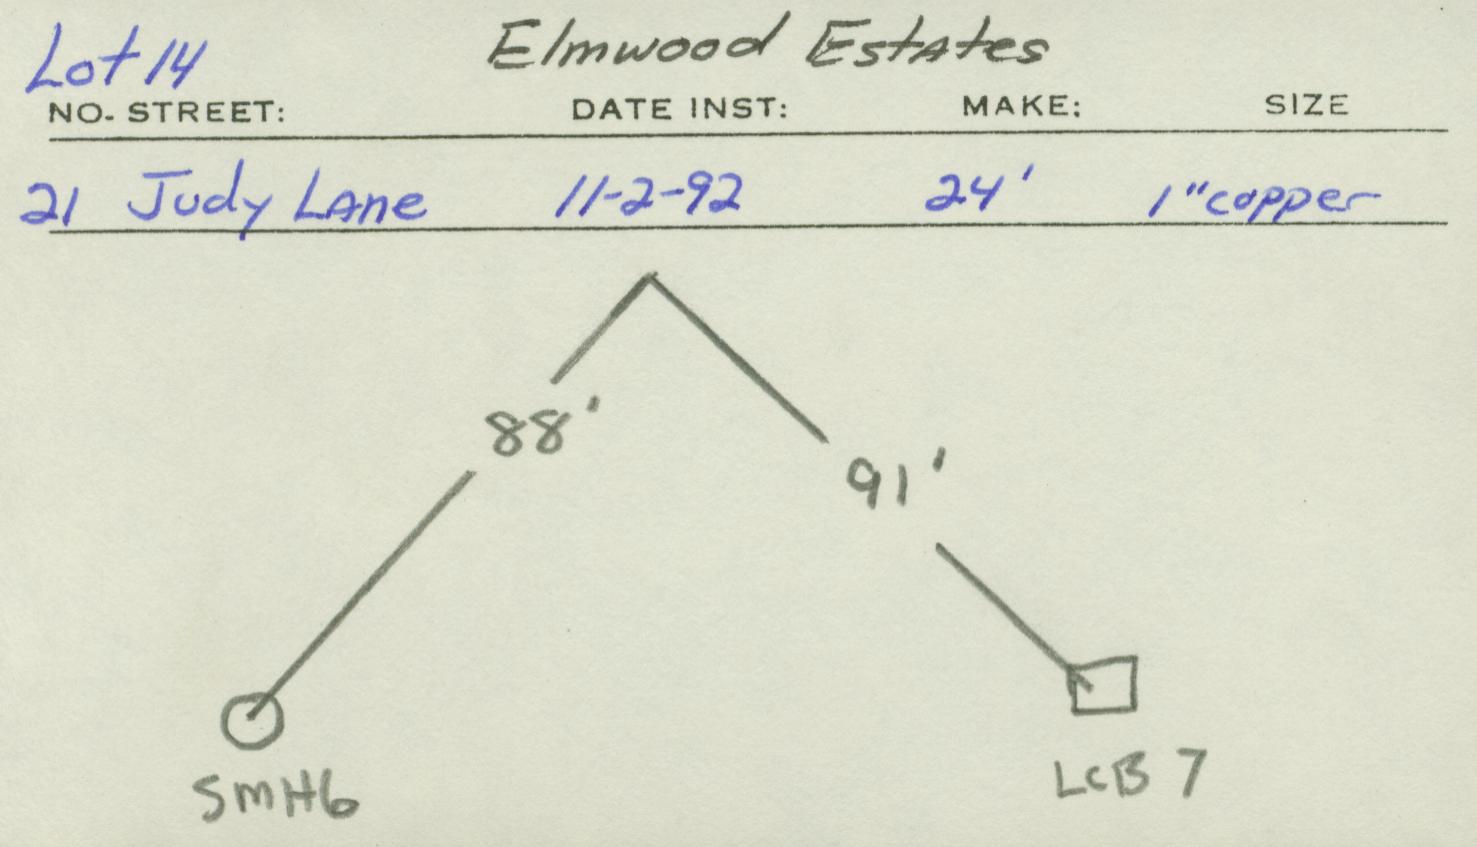 Lot 14 Elmwood Estates
NO. STREET: DATE INST: MAKE: SIZE
21 Judy Lane 11-2-92 24' 1" copper
88'
91'
SMH6
LCB 7